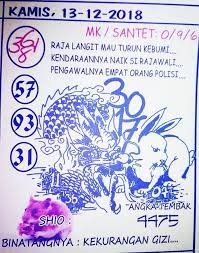 KAMIS, 13-12-2018
MK / SANTET: 0/9/6
RAJA LANGIT MAU TURUN KEBUMI....
KENDARAANNYA NAIK SI RAJAWALI...
PENGAWALNYA EMPAT ORANG POLISI...
57
93
31
30
17
ANGKA TEMBAK
4475
SHIO :
BINATANGNYA : KEKURANGAN GIZI....